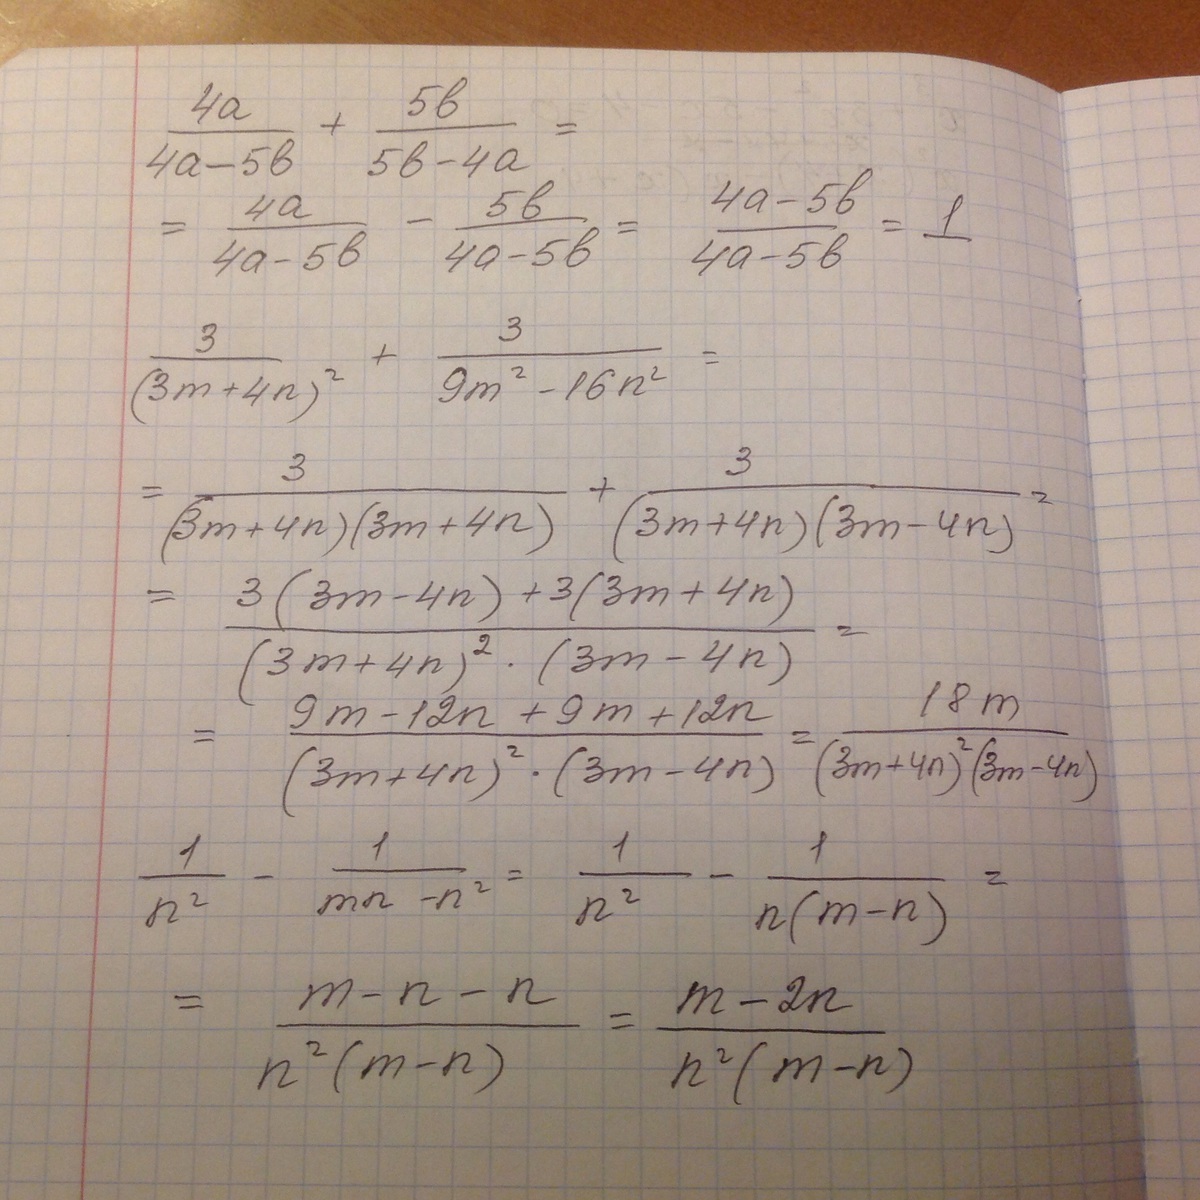 4a/(4a-5b) + 5b/(5b-4a) =
= 4a/(4a-5b) - 5b/(4a-5b) = (4a-5b)/(4a-5b) = 1
3/(3m+4n)² + 3/(9m²-16n²) =
= 3/((3m+4n)(3m+4n)) + 3/((3m+4n)(3m-4n)) =
= (3(3m-4n)+3(3m+4n))/((3m+4n)²·(3m-4n)) =
= (9m-12n+9m+12n)/((3m+4n)²·(3m-4n)) = 18m/((3m+4n)²(3m-4n))
1/n² - 1/(mn-n²) = 1/n² - 1/(n(m-n)) =
= (m-n-n)/(n²(m-n)) = (m-2n)/(n²(m-n))